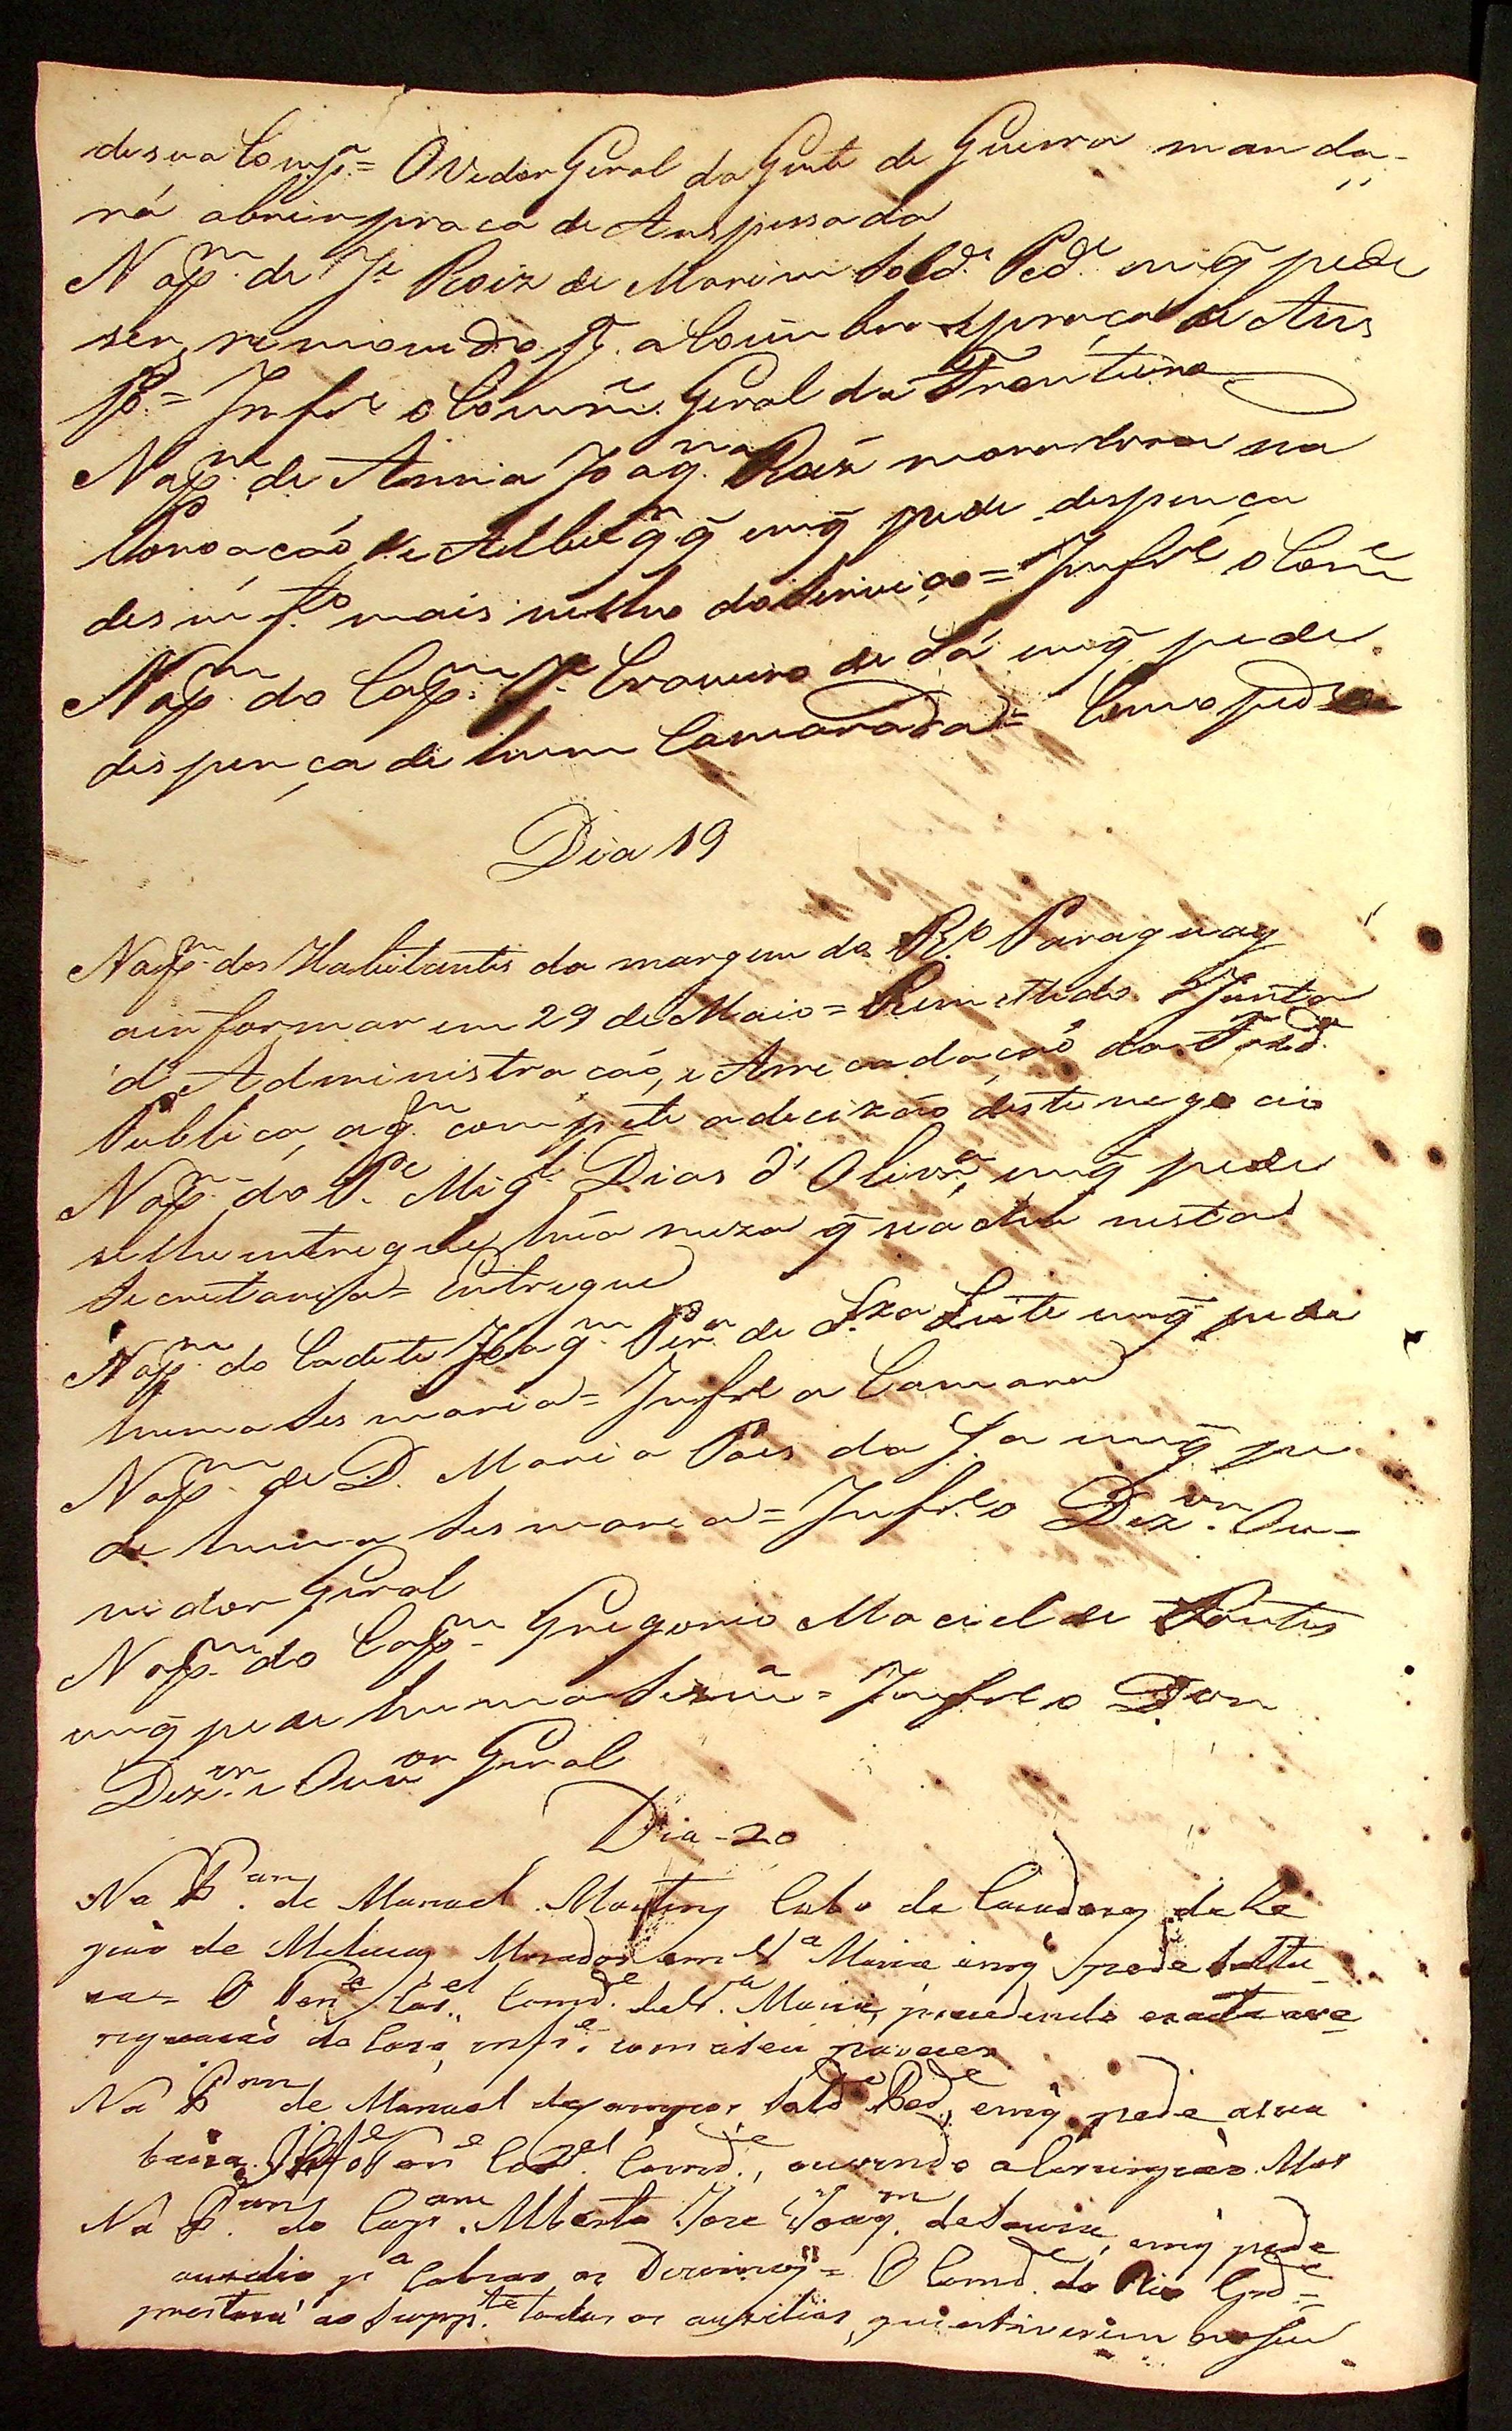 de sua Comp.ª = O Vedor Geral da Gente de Guerra manda-
rá abrir praça de Anspessada
Na p.m de J.e Roiz de Morim Sold.º Ped.e em q̃ pede
ser removido p.ª Coimbra e praça de Ans
p.ª = Inf.e o Com.e Geral da Fronteira
Na p.m de Anna Joaq.na Roiz moradora na
Povoação de Albuq.q̃ em q̃ pede despença
de seu f.º mais velho do Serviço = Inf.e o Com.e
Na p.m do Cap.m J.e Craveiro de Sá em q̃ pede
dispença de hum Camarada = Como pede
Dia 19
Na p.m dos Habitantes da margem do R.º Paraguay
a informar em 29 de Maio = Remettido á Junta
d'Administração, e Arrecadação da Fazd.ª
Publica, a q.m compete a decizão deste negocio
Na p.m do P.e Mig.l Dias d'Olivr.ª, em q̃ pede
se lhe entregue hũa q̃ se acha nesta
Secretaria = Entregue
Na p.m do Cadete Joaq.m Per.ª de S.za Leite em q̃ pede
huma Sesmaria = Inf.e a Camara
Na p.m de D. Maria Paes da S.ª em q̃ pe
de huma Sesmaria = Inf.e o Dez.or Ou-
vidor Geral
Na p.m do Cap.m Gregorio Maciel de Pontes
em q̃ pede huma Sesm.ª = Inf.e o D.or
Dez.or e Ouv.or Geral
Dia - 20
Na P.am de Manoel Martins Cabo de da Le
gião de Milicias Morador em V.ª Maria em q̃ pede Soltu
ra = O Ten.e Cor.el Comd.e de V.ª Maria, procedendo exacta ave
riguação do Caso, inf.e com o seu parecer
Na P.am de Manoel de Sold.º Ped.e, em q̃ pede a sua
baixa. Inf.e o Ten.e Cor.el Comd.e, ouvindo o Cirurgião Mor
Na P.am do Cap.am Alberto Joze Joaq.m de Souza, em q̃ pede
auxilio p.ª Cobrar os Dizimos = O Comd.e do Rio Gd.e =
prestará ao Supp.te todos os auxilios, que estiverem no seu